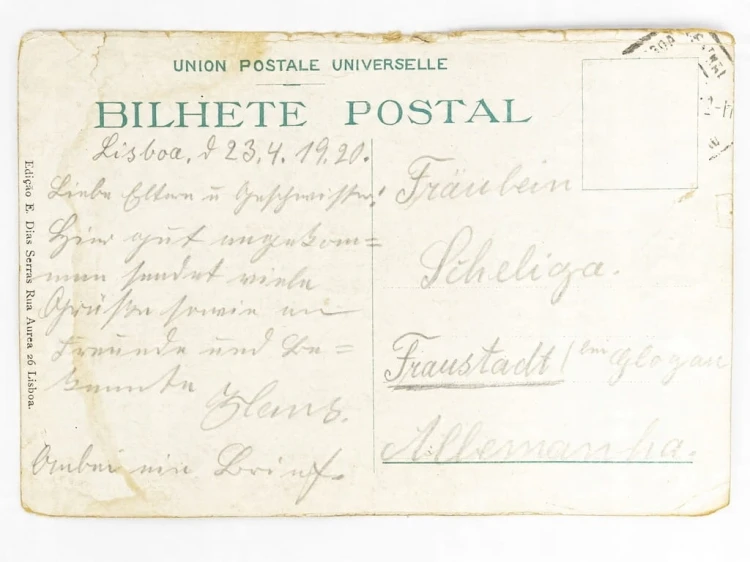 UNION POSTALE UNIVERSELLE
BILHETE POSTAL
Lisboa, d 23.4. 19.20.
Liebe Eltern u Geschwister!
Hier gut angekom=
men sendet viele
Grüße sowie an
Freunde und Be=
kannte
Hans.
Anbei ein Brief.
Fräulein
Scheliga.
Fraustadt / bei Glogau
Allemanha.
Edição E. Dias Serras Rua Aurea 26 Lisboa.